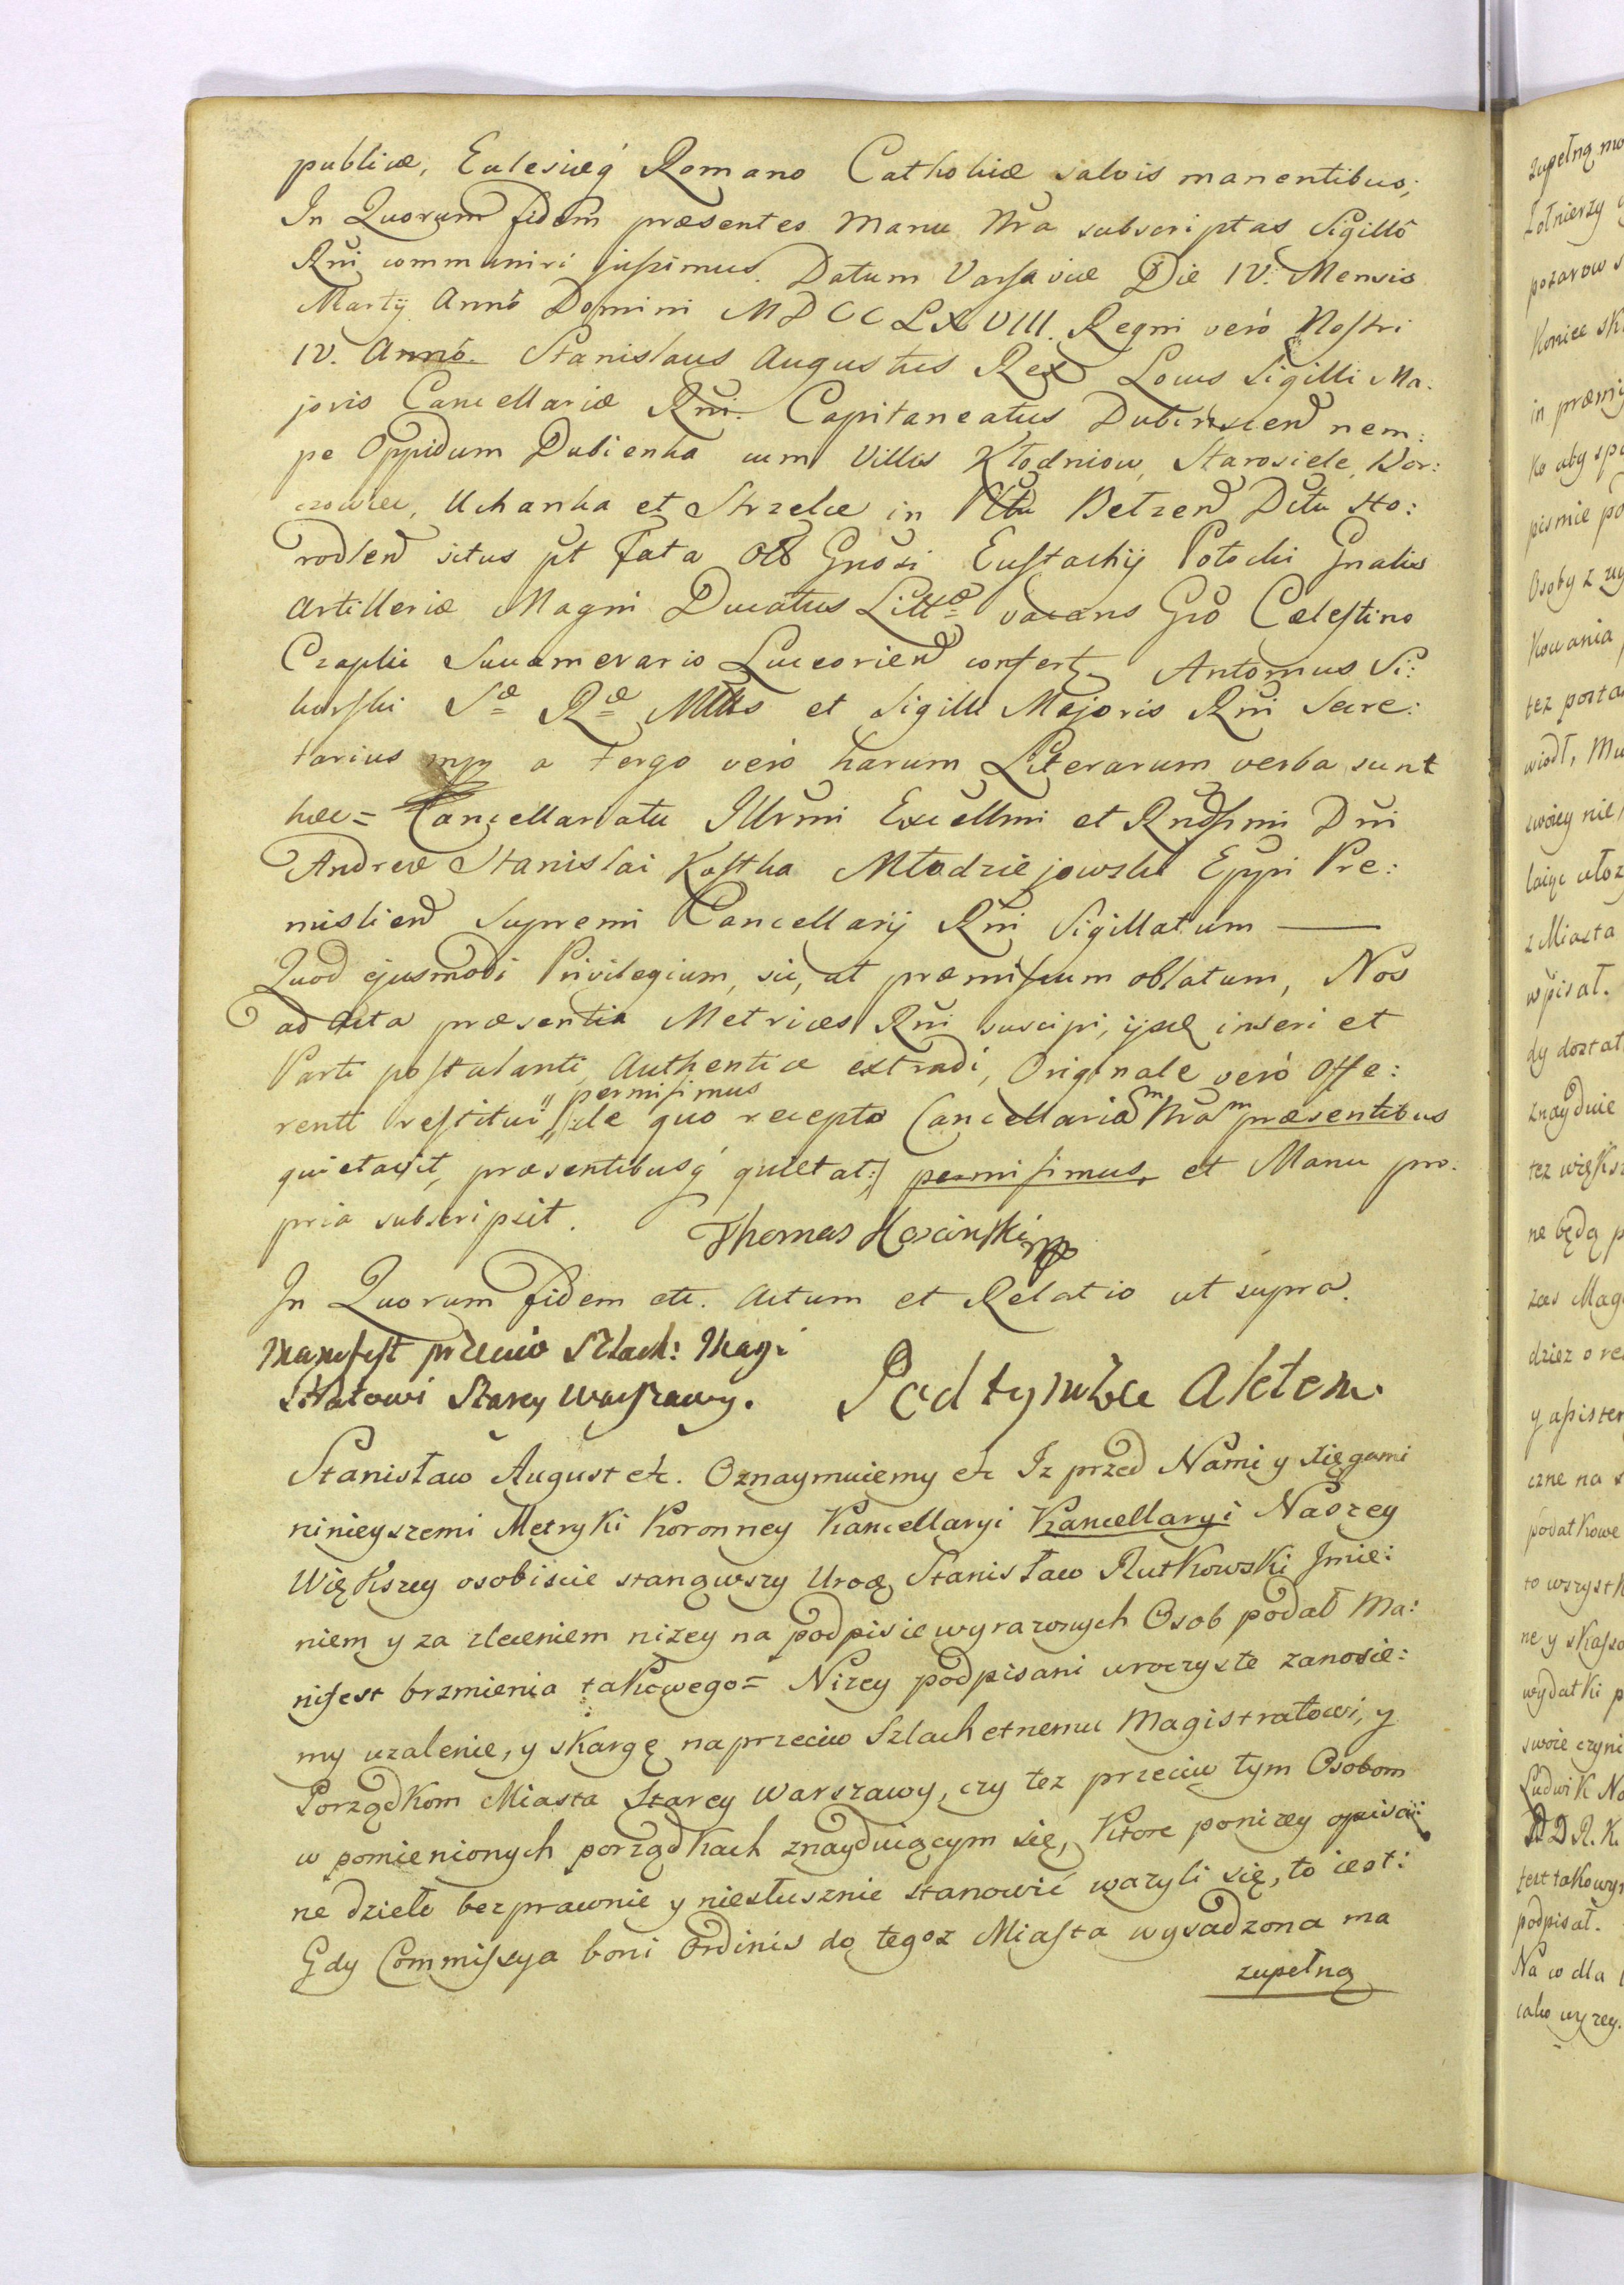 publicæ, Eclesiæq́ Romano Catholicæ salvis manentibus;
In Quorum fidem præsentes Manu Nra subscriptas Sigillô
Rni communiri jussimus. Datum Varsaviæ Die IV. Mensis
Martij Annô Domini MDCCLXVIII. Regni verò Nostri
IV. Annô. Stanislaus Augustus Rex Locus Sigilli Ma:
joris Cancellariæ Rni. Capitaneatus Dubinscien nem:
pe Oppidum Dubienka cum Villis Kłodniow, Starosiele, Kor:
czowiec, Uchanka et Strzelce in Pltu Belzen Dctu Ho:
rodlen situs pt fata Olb Gnosi Eustachij Potocki Gnalis
Artilleriæ Magni Ducatus Littæ vacans Gso Cælestino
Czaplic Succamerario Luceorien confert. Antonius Si:
korski Sæ Ræ Mttis et Sigilli Majoris Rni Secre:
tarius mpp a tergo verò harum Literarum verba sunt
hæc= Cancellariatu Illrmi Excellmi et Rndssmi Dni
Andreæ Stanislai Kostka Młodziejowski Eppi Pre:
mislien Supremi Cancellarij Rni Sigillatum ——
Quod ejusmodi Privilegium, sic, ut præmissum oblatum, Nos
ad Acta præsentia Metrices Rni suscipi, ijsq inseri et
Parti postulanti, Authentice extradi, Originale verò Offe:
permisimus
renti restitui de quo recepto Cancellariam Nram præsentibus
quietavit, præsentibusq́ quietat: permisimus, et Manu pro:
pria subscripsit. Thomas Kosinski mpp
In Quorum fidem etc. Actum et Relatio ut supra.
Manifest przeciw Szlach: Magi
stratowi Starey Warszawy. Pod tymże Aktem.
Stanisław August etc. Oznaymuiemy etc Iz przed Nami y xięgami
ninieyszemi Metryki Koronney Kancellaryi Kancellaryi Naszey
Większey osobiscie stanąwszy Urod, Stanisław Rutkowski Jmie:
niem y za zleceniem nizey na podpisie wyrazonych Osob podał Ma:
nifest brzmienia takowego= Nizey podpisani uroczyste zanosie:
my uzalenie, y skargę naprzeciw Szlachetnemu Magistratowi, y
Porządkom Miasta Starey Warszawy, czy tez przeciw tym Osobom
w pomienionych porządkach znayduiącym się, Ktore ponizey opisa:
ne dzieło bezprawnie y niesłusznie stanowić wazyli się, to iest:
Gdy Commissya boni Ordinis do tegoz Miasta wysadzona ma
zupełną